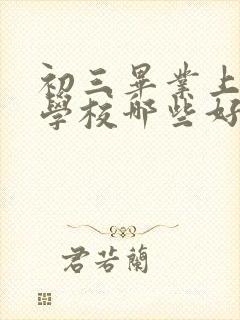 初三畢業上
學校哪些好
君若蘭